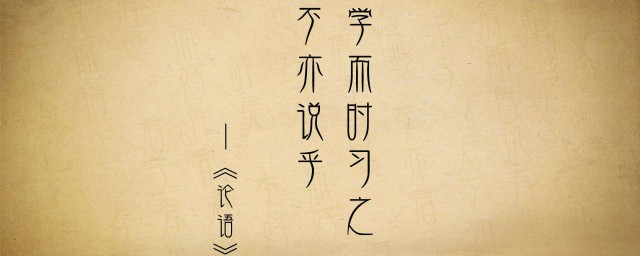 学而时习之
不亦说乎
—《论语》